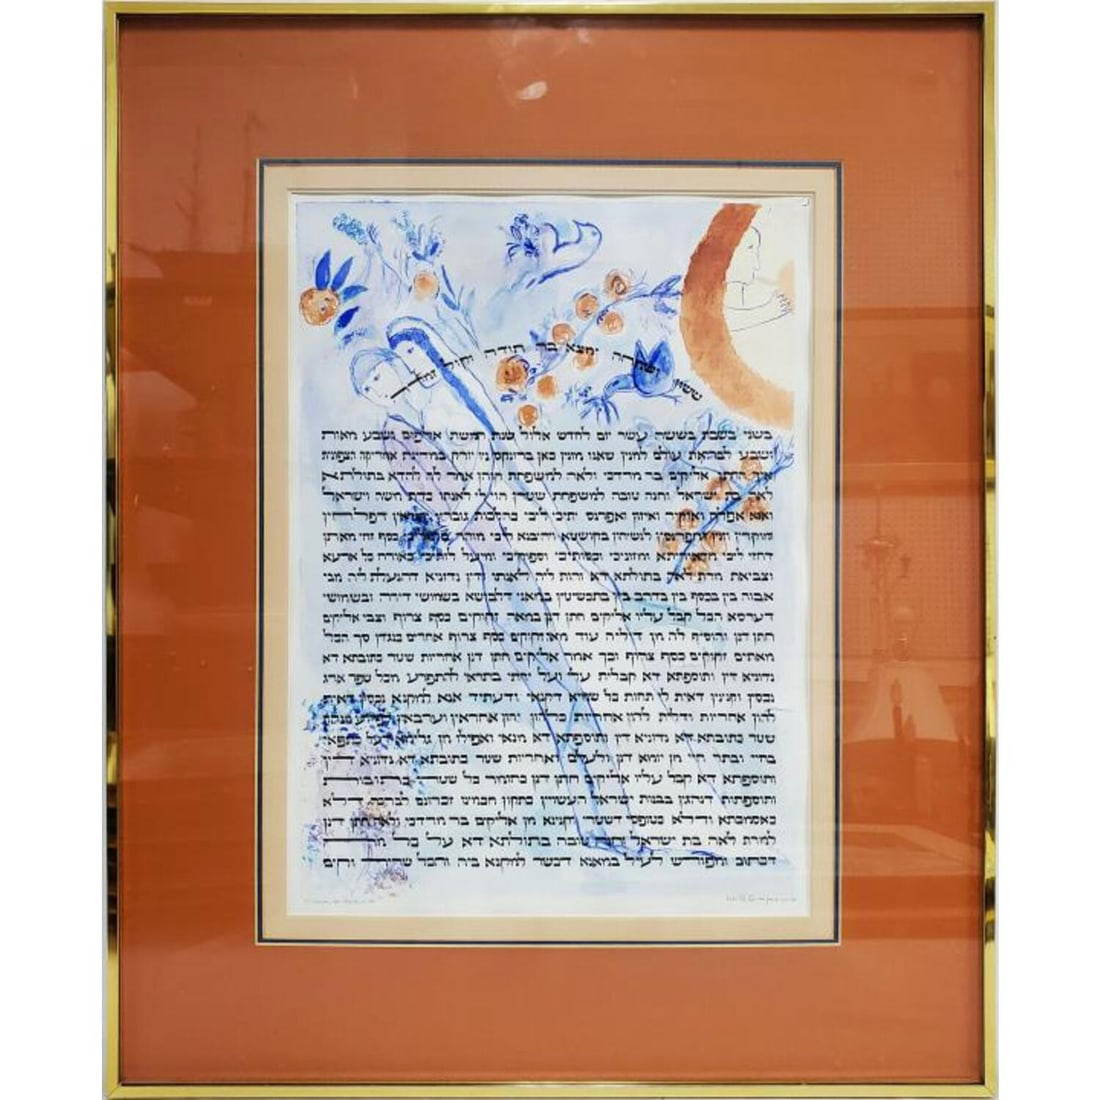 ששון ושמחה ומצא בה תודה וקול זמרה
בשני בשבת בששה עשר יום לחדש אלול שנת חמשת אלפים ושבע מאות
ושבע לבריאת עולם למנין שאנו מונין כאן ברונקס ניו יורק במדינת אמריקה הצפונית
איך החתן אליקים בר מרדכי ולאה למשפחת אמר לה להדא בתולתא
לאה בת ישראל וחנה טובה למשפחת שטרן הוי לי לאנתו כדת משה וישראל
ואנא אפלח ואוקיר ואיזון ואפרנס יתיכי ליכי כהלכות גוברין יהודאין דפלחין
ומוקרין וזנין ומפרנסין לנשיהון בקושטא ויהיבנא ליכי מוהר כסף זוזי מאתן
דחזי ליכי ומזוניכי וכסותיכי וסיפוקיכי ומיעל לותיכי כאורח כל ארעא
וצביאת מרת לאה בתולתא דא והות ליה לאנתו ודין נדוניא דהנעלת ליה מבי
אבוה בין בכסף בין בדהב בין בתכשיטין במאני דלבושא בשמושי דירה ובשמושי
דערסא הכל קבל עליו אליקים חתן דנן במאה זקוקים כסף צרוף וצבי אליקים
חתן דנן והוסיף לה מן דיליה עוד מאה זקוקים כסף צרוף אחרים כנגדן סך הכל
מאתים זקוקים כסף צרוף וכך אמר אליקים חתן דנן אחריות שטר כתובתא דא
נדוניא דין ותוספתא דא קבלית עלי ועל ירתי בתראי להתפרע מכל שפר ארג
נכסין וקנינין דאית לי תחות כל שמיא דקנאי ודעתיד אנא למקנא נכסין דאית
להון אחריות ודלית להון אחריות כלהון יהון אחראין וערבאין לפרוע מנהון
שטר כתובתא דא נדוניא דין ותוספתא דא מנאי ואפילו מן גלימא דעל כתפאי
בחיי ובתר חיי מן יומא דנן ולעלם ואחריות שטר כתובתא דא נדוניא דין
ותוספתא דא קבל עליו אליקים חתן דנן כחומר כל שטרי כתובות
ותוספתות דנהגין בבנות ישראל העשויין כתקון חכמינו זכרונם לברכה דלא
כאסמכתא ודלא כטופסי דשטרי וקנינא מן אליקים בר מרדכי ולאה חתן דנן
למרת לאה בת ישראל וחנה טובה בתולתא דא על כל מה
דכתוב ומפורש לעיל במאנא דכשר למקנא ביה והכל שריר וקים